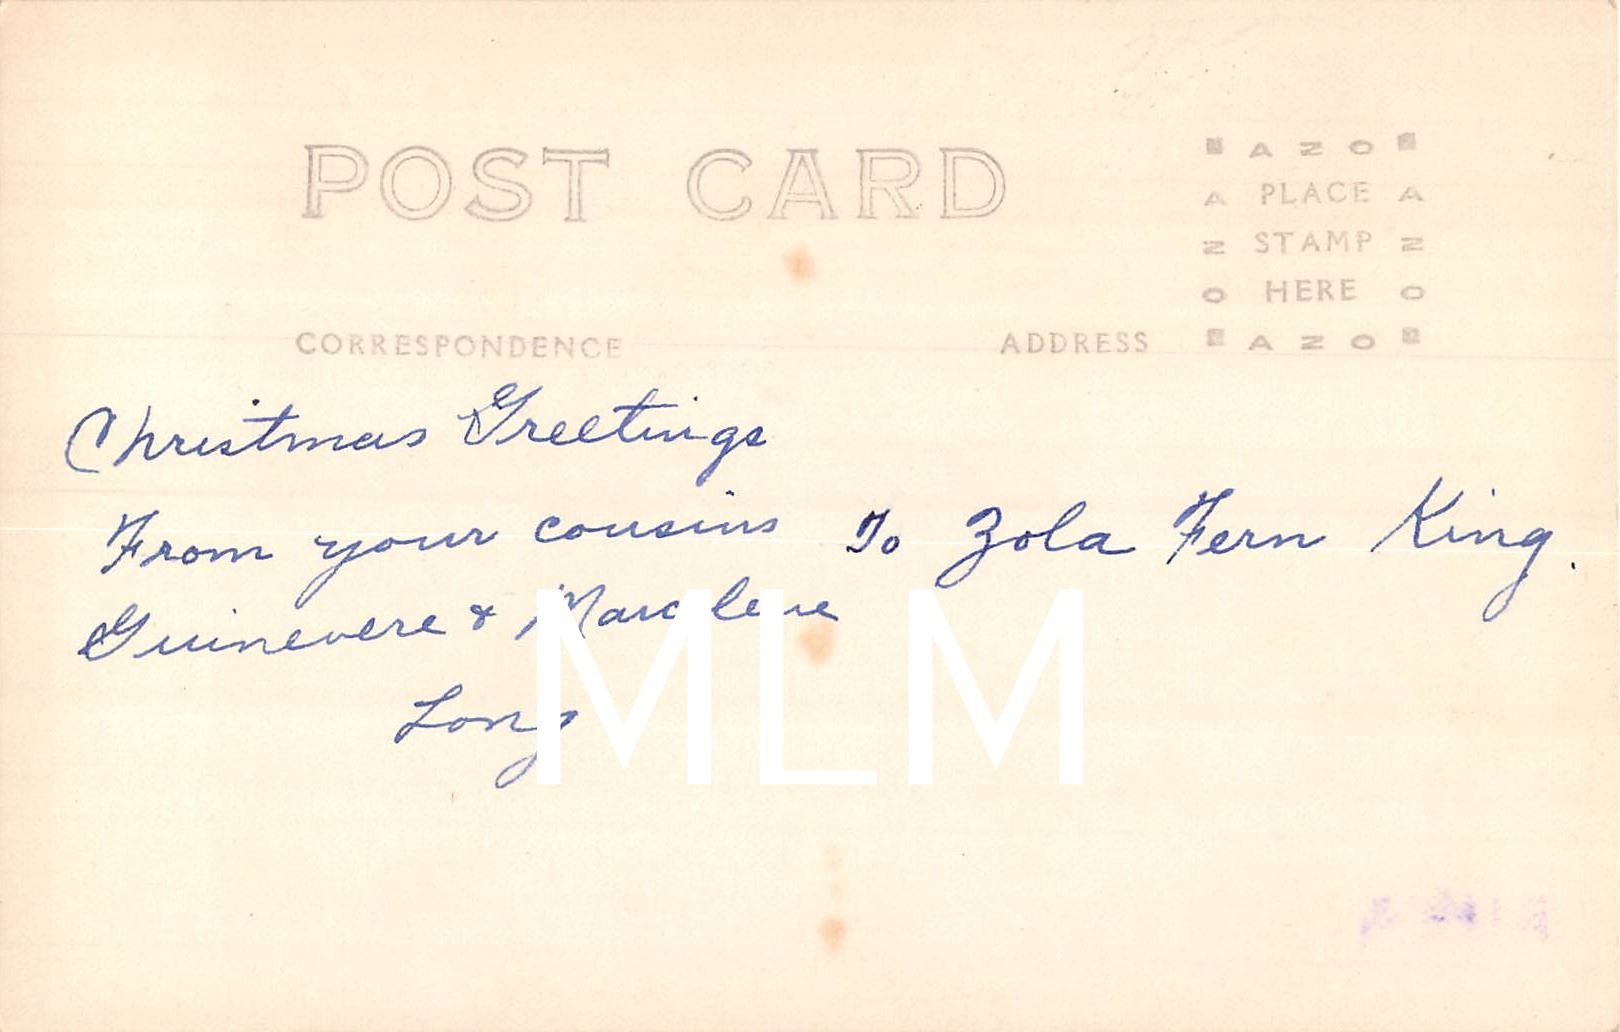 POST CARD
AZO
A PLACE A
Z STAMP Z
O HERE O
AZO
CORRESPONDENCE
ADDRESS
Christmas Greetings
From your cousins
Guinevere &
Long
To Zola Fern King.
MLM